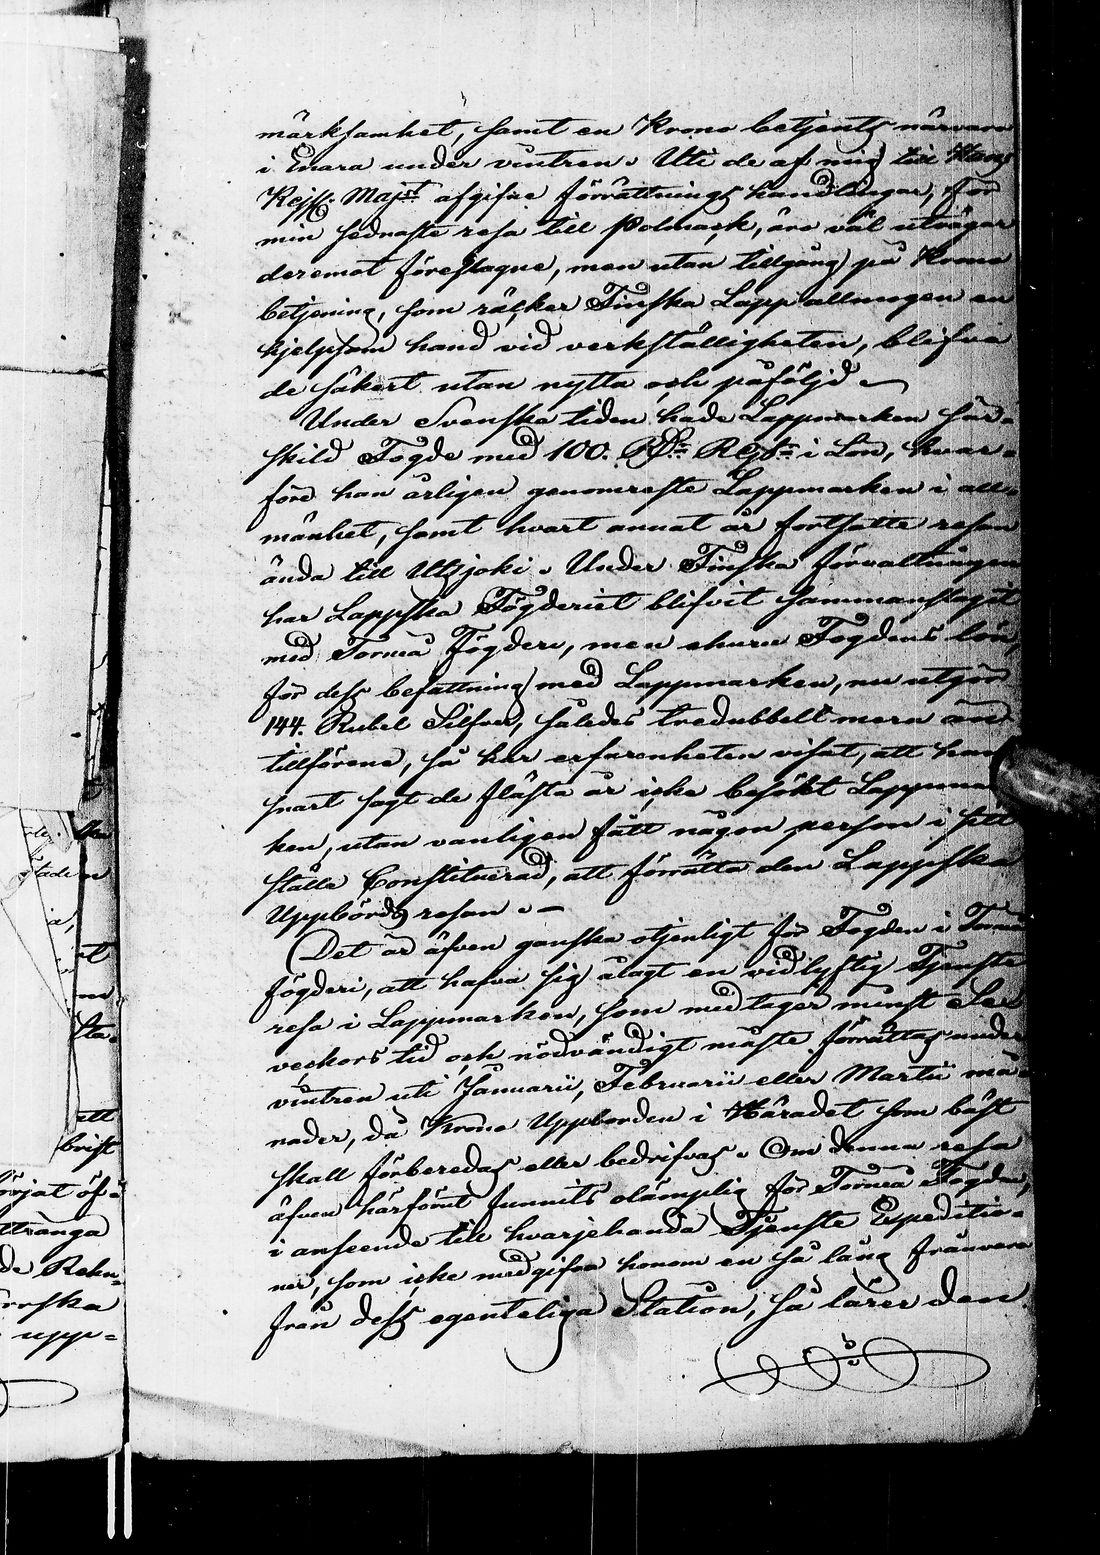 märksamhet, samt en Krono betjents närvaro
i Enara under vintren. Uti de af mig till Hans
Kejsl. Majst afgifne förrättnings handlingar, för
min sednaste resa till Polmack, äro väl utvägar
deremot föreslagne, men utan tillgång på Krono
betjening, som räcker Finska Lapp allmogen en
hjelpsam hand vid verkställigheten, blifva
de säkert utan nytta och påföljd.
Under Svenska tiden hade Lappmarken sär-
skild Fogde med 100. Rd:r Rgs:r i Lön, hvar-
före han årligen genomreste Lappmarken i all-
mänhet, samt hvart annat år fortsatte resan
ända till Utsjoki. Under Finska förvaltningen
har Lappska Fögderiet blifvit sammanslagit
med Torneå Fögderi, men ehuru Fogdens lön,
för dess befattning med Lappmarken, nu utgör
144. Rubel Silfver, således tredubbelt mera än
tillförene, så har erfarenheten visat, att han
snart sagt de flästa år icke besökt Lappmar
ken, utan vanligen fått någon person i sitt
ställe Constituerad, att förrätta den Lappska
Uppbörds resan. -
Det är äfven ganska otjenligt för Fogden i Torneå
fögderi, att hafva sig ålagt en vidlyftig Tjenste
resa i Lappmarken, som medtager minst Sex
veckors tid och nödvändigt måste förrättas under
vintren uti Januarii, Februarii eller Martii må-
nader, då Krono Uppbörden i Häradet som bäst
skall förberedas eller bedrifvas. Om denna resa
äfven härförut funnits olämplig för Torneå Fogden,
i anseende till hvarjehanda Tjenste Expeditio-
ner, som icke medgifva honom en så lång frånvaro
från dess egenteliga Station, så lärer den